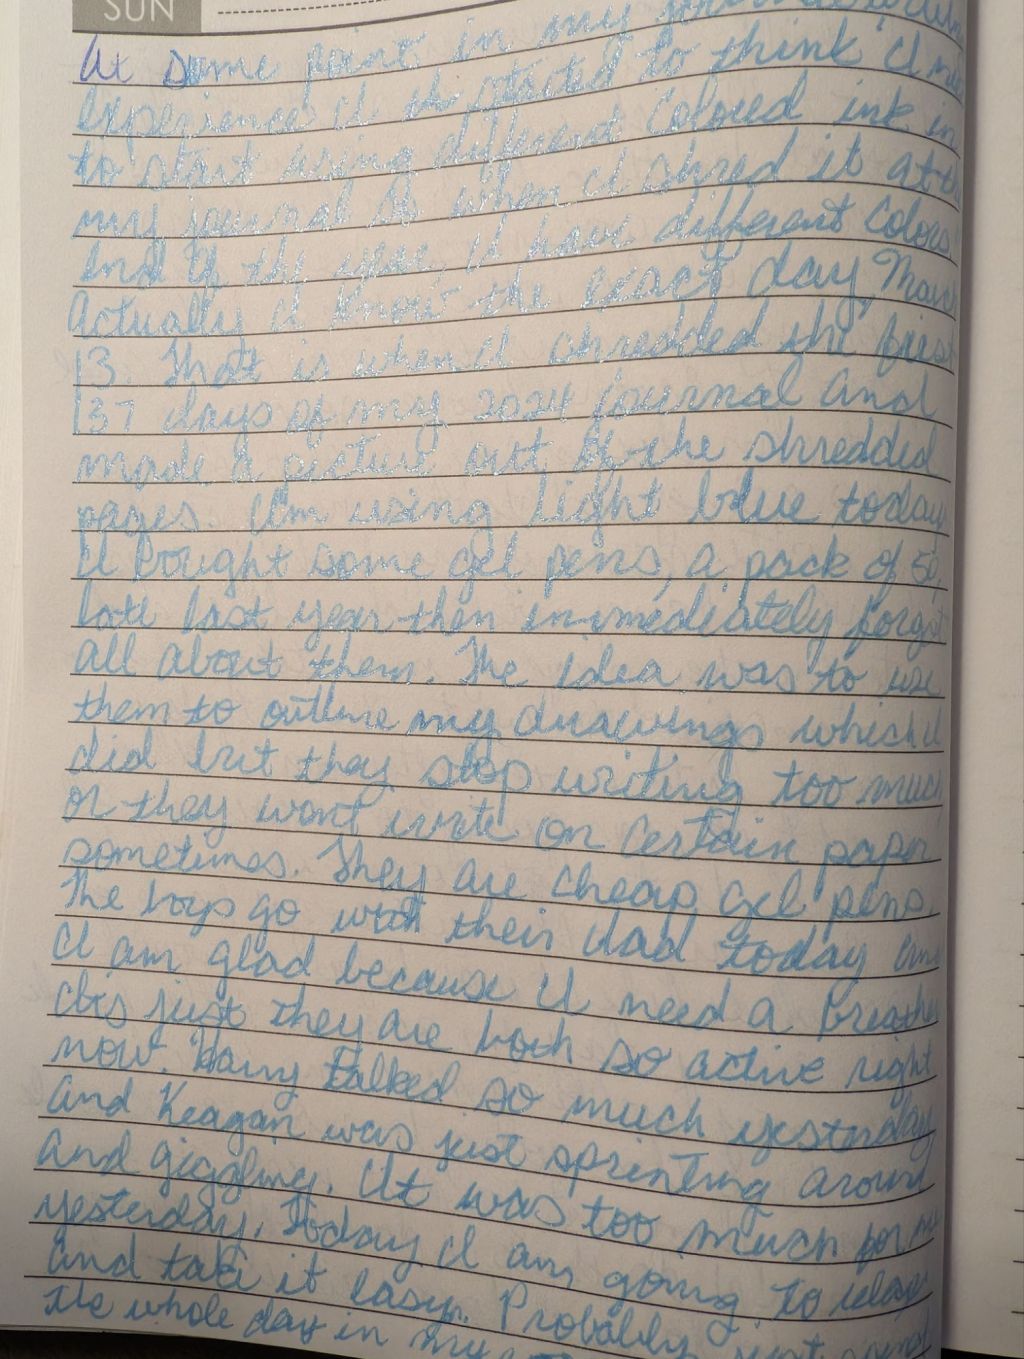 SUN
At some point in my journal writing
experience I th started to think I need
to start using different colored ink in
my journal so when I shred it at the
end of the year, I have different colors.
Actually I know the exact day, March
13. That is when I shredded the first
137 days of my 2024 journal and
made a picture out of the shredded
pages. I'm using light blue today.
I bought some gel pens, a pack of 50,
late last year then immediately forgot
all about them. The idea was to use
them to outline my drawings which I
did but they stop writing too much
or they wont write on certain paper
sometimes. They are cheap gel pens.
The boys go with their dad today and
I am glad because I need a breather
Its just they are both so active right
now. Harry talked so much yesterday
and Keagan was just sprinting around
and giggling. It was too much for me
yesterday. Today I am going to relax
and take it easy. Probably just spend
the whole day in my